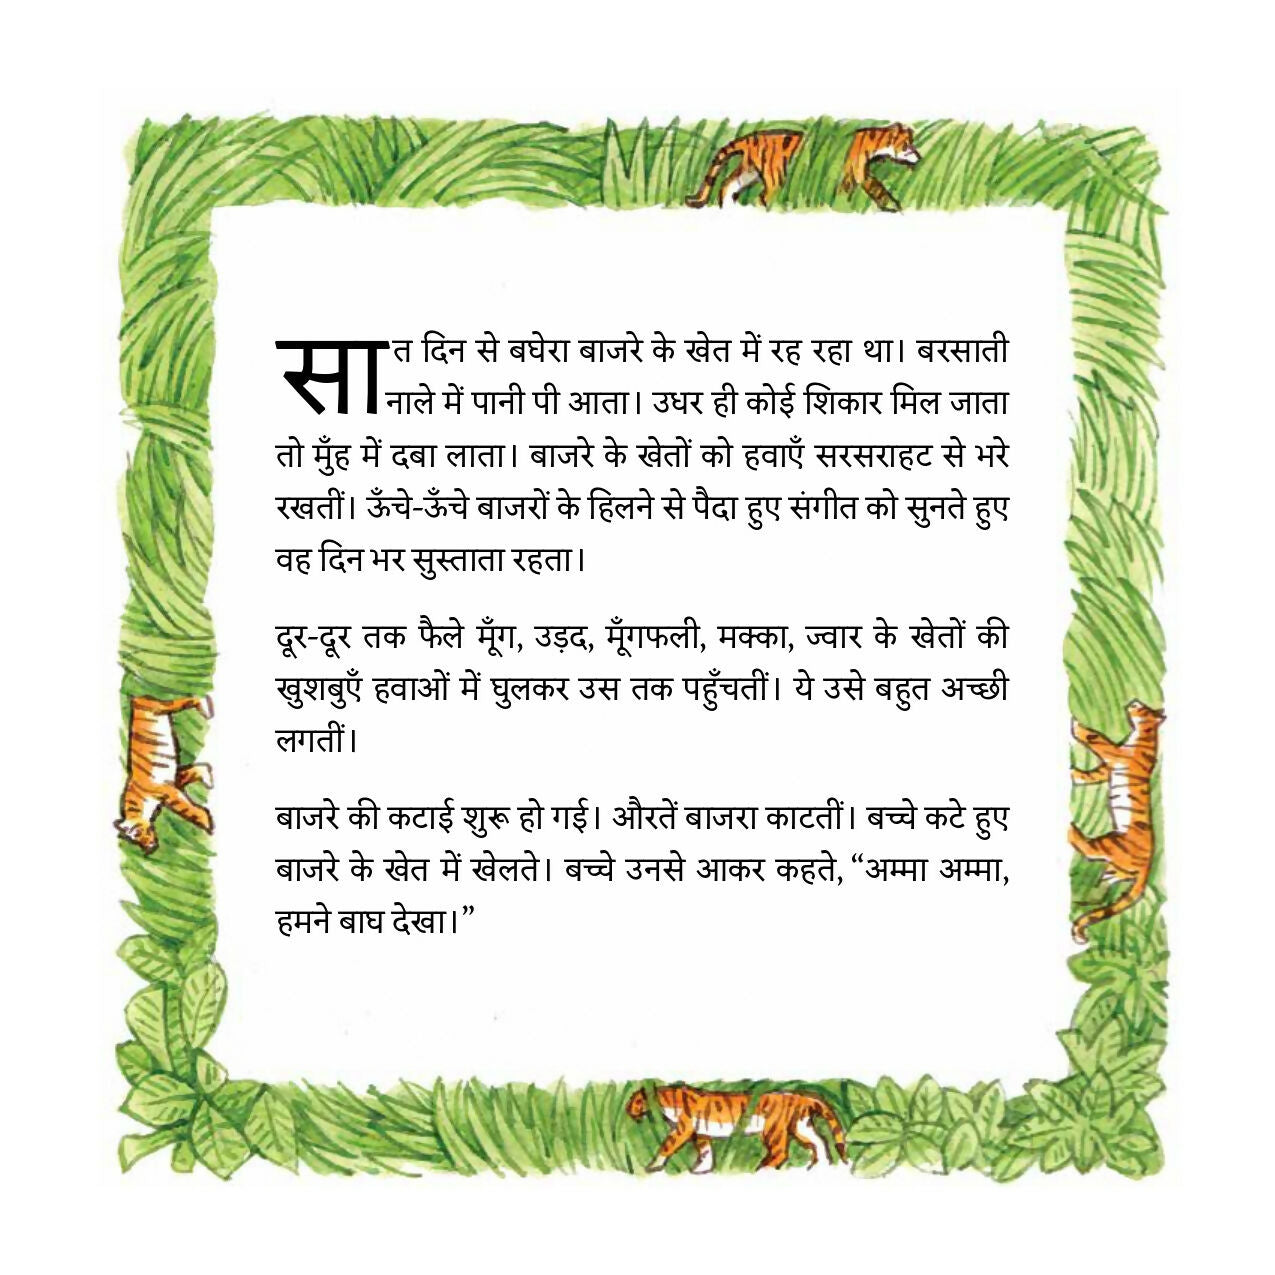 सात दिन से बघेरा बाजरे के खेत में रह रहा था। बरसाती
नाले में पानी पी आता। उधर ही कोई शिकार मिल जाता
तो मुँह में दबा लाता। बाजरे के खेतों को हवाएँ सरसराहट से भरे
रखतीं। ऊँचे-ऊँचे बाजरों के हिलने से पैदा हुए संगीत को सुनते हुए
वह दिन भर सुस्ताता रहता।
दूर-दूर तक फैले मूँग, उड़द, मूँगफली, मक्का, ज्वार के खेतों की
खुशबुएँ हवाओं में घुलकर उस तक पहुँचतीं। ये उसे बहुत अच्छी
लगतीं।
बाजरे की कटाई शुरू हो गई। औरतें बाजरा काटतीं। बच्चे कटे हुए
बाजरे के खेत में खेलते। बच्चे उनसे आकर कहते, “अम्मा अम्मा,
हमने बाघ देखा।”